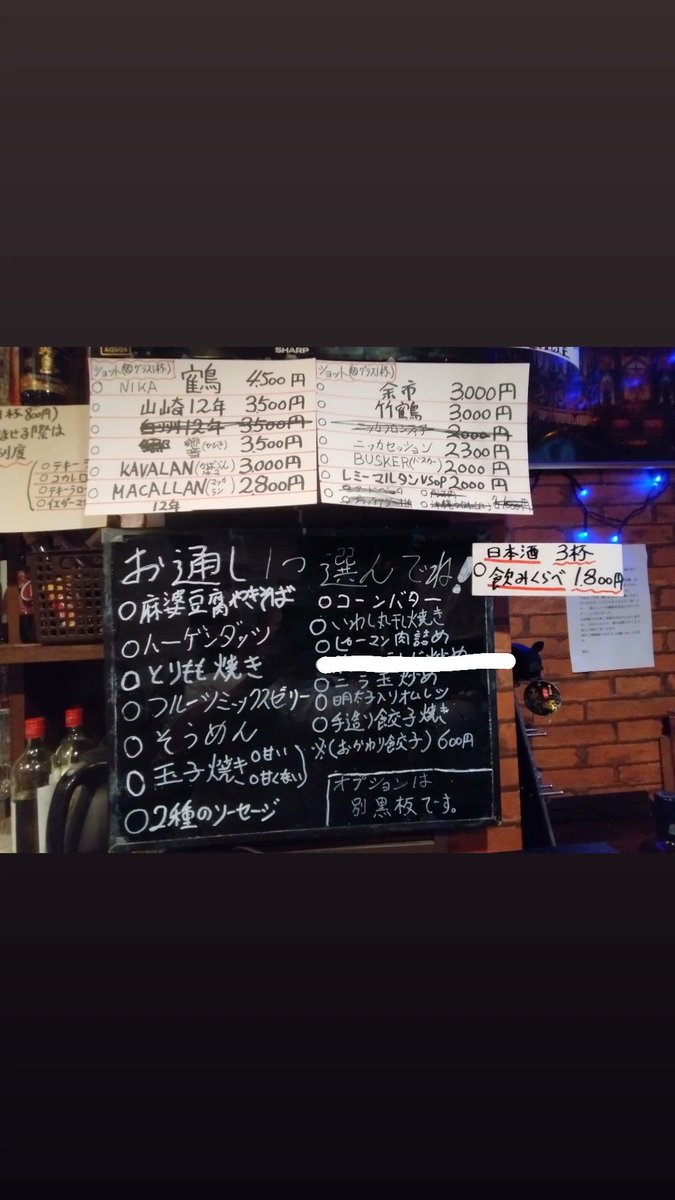 AQUOS
SHARP
ショット(グラス1杯)
NIKA 鶴 4,500円
山崎12年 3500円
白州12年 3500円
響(ひびき) 3,500円
KAVALAN 3,000円
MACALLAN(マッカラン) 2,800円
12年
ショット(グラス1杯)
余市 3000円
竹鶴 3000円
ニッカフロンティア 2000円
ニッカセッション 2300円
BUSKER(バスカー) 2000円
レミーマルタンVSOP 2000円
1杯800円)
ませる際は
テキーラ
コカレロ
日本酒 3杯
飲みくらべ 1.800円
お通し1つ選んでね!
麻婆豆腐やきそば
ハーゲンダッツ
とりもも焼き
フルーツミックスゼリー
そうめん
玉子焼き 甘い
甘くない
2種のソーセージ
コーンバター
いわし丸干し焼き
ピーマン肉詰め
ニラ玉炒め
明太子入りオムレツ
手造り餃子焼き
※(おかわり餃子)600円
オプションは
別黒板です。